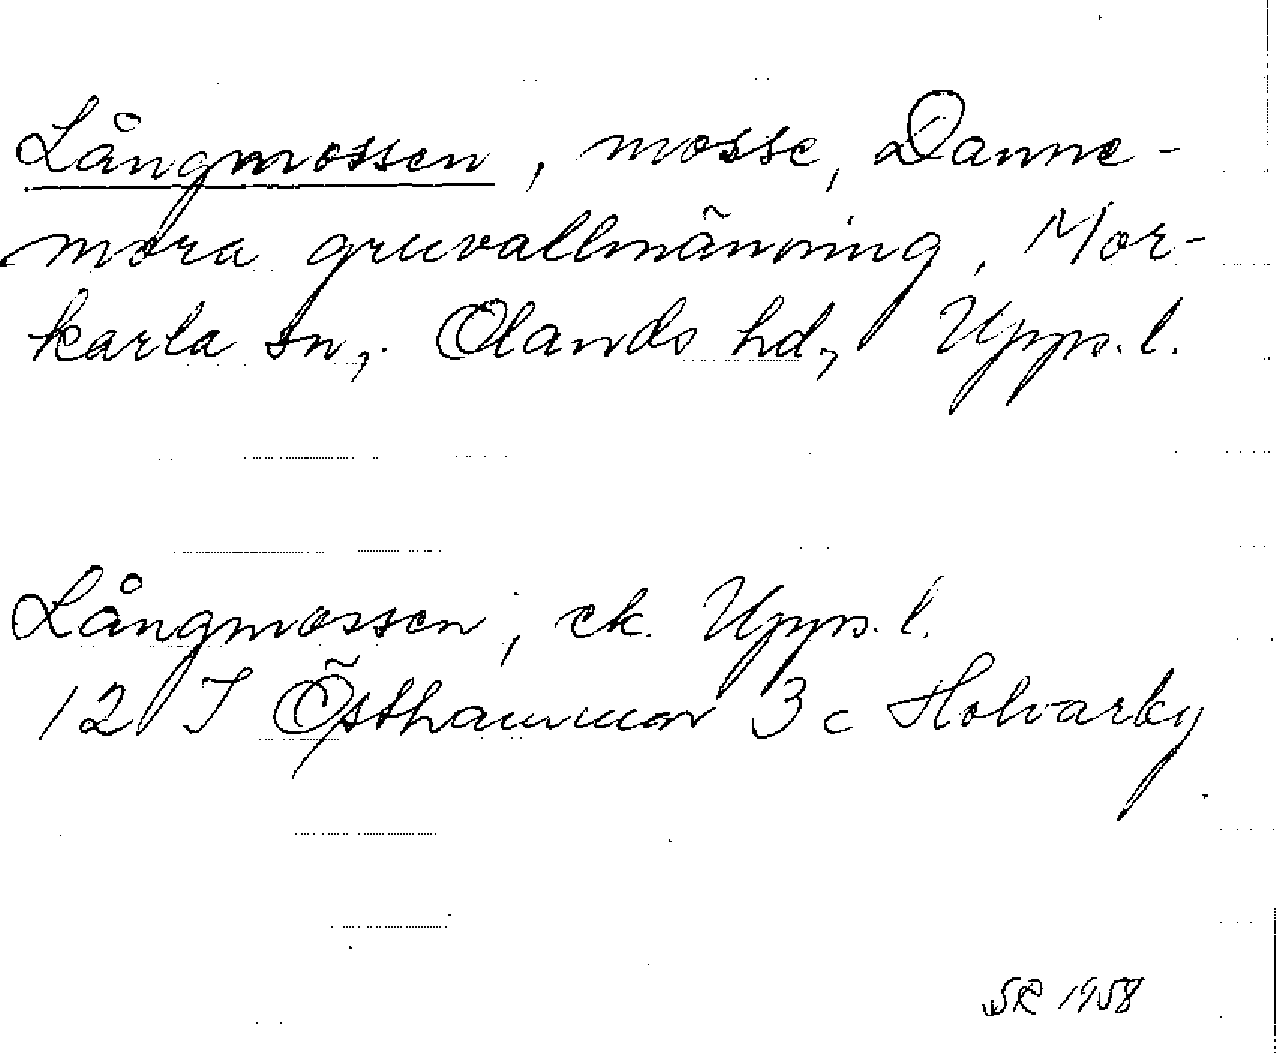 Långmossen, mosse, Danne-
mora gruvallmänning, Mor-
karla sn, Olands hd, Upps. l.
Långmossen, ek. Upps. l.
12 I Östhammar 3 c Holvarby
SR 1958